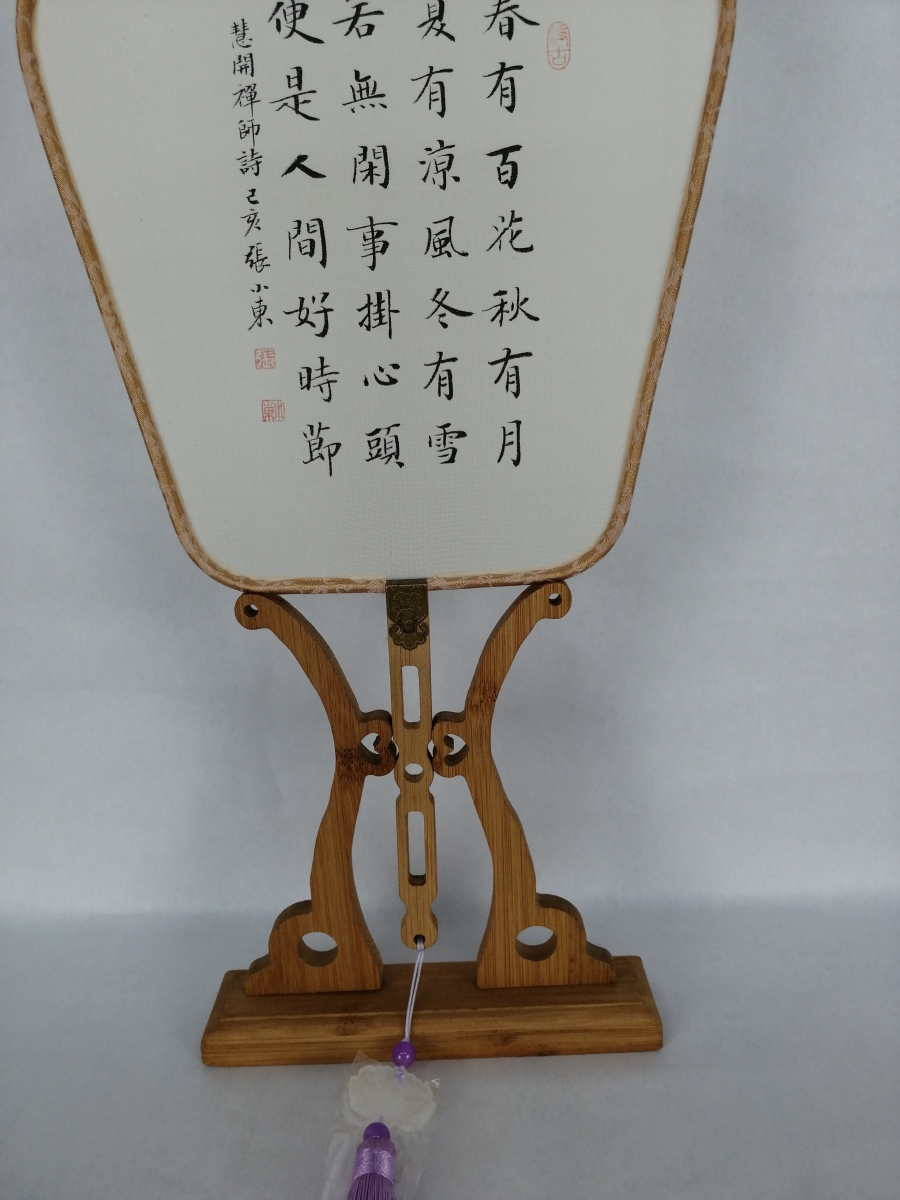 春有百花秋有月
夏有涼風冬有雪
若無閑事掛心頭
便是人間好時節
慧開禪師詩 己亥 張小東
張
小東